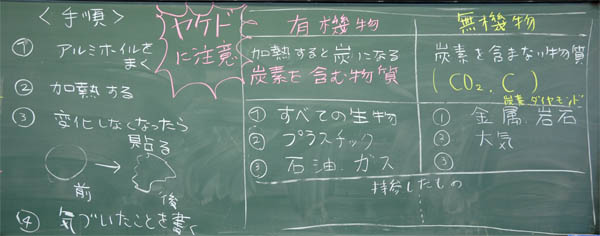 〈手順〉
① アルミホイルを
まく
② 加熱する
③ 変化しなくなったら
貼る
前
後
④ 気づいたことを書く
ヤケド
に注意
有機物
加熱すると炭になる
炭素を含む物質
① すべての生物
② プラスチック
③ 石油.ガス
無機物
炭素を含まない物質
(CO2、C)
炭素 ダイヤモンド
① 金属.岩石
② 大気
③
持参したもの